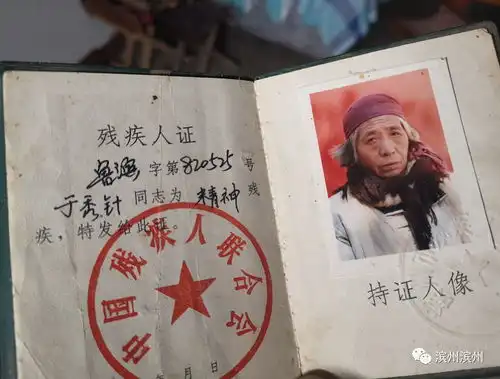 残疾人证
鲁滨字第820525号
于秀针同志为精神残
疾，特发给此证。
中国残疾人联合会
年月日
持证人像
滨州滨州